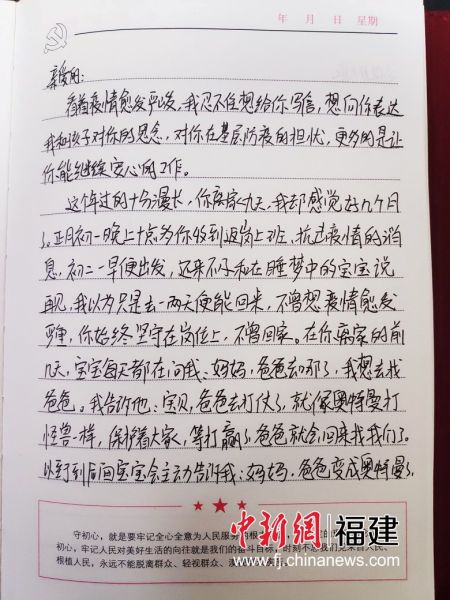 年 月 日 星期
亲爱的:
看着疫情愈发严峻,我忍不住想给你写信,想向你表达
我和孩子对你的思念,对你在基层防疫的担忧,更多的是让
你能继续安心的工作。
这个年过的十分漫长,你离家九天,我却感觉好几个月
了。正月初一晚上十点多你收到返岗上班、抗过疫情的消
息,初二一早便出发,还来不及和在睡梦中的宝宝说
再见,我以为只是去一两天便能回来,不曾想疫情愈发
严重,你始终坚守在岗位上,不曾回家。在你离家的前
几天,宝宝每天都在问我:妈妈,爸爸去哪了,我想去找
爸爸。我告诉他:宝贝,爸爸去打仗了,就像奥特曼打
怪兽一样,保护着大家,等打赢了,爸爸就会回来找我们了。
以到后面宝宝会主动告诉我:妈妈,爸爸变成奥特曼了,
守初心,就是要牢记全心全意为人民服务的根
初心,牢记人民对美好生活的向往就是我们的奋斗目标,时刻不忘我们党来自人民、
根植人民,永远不能脱离群众、轻视群众、
中新網 福建
www.fj.chinanews.com